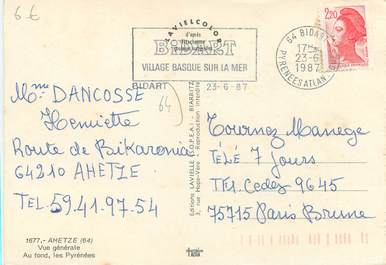 6 €
BIDART
VILLAGE BASQUE SUR LA MER
BIDART
23-6-87
64 BIDART
17H
23-6
1987
PYRENEES ATLAN
2,20
LAVIELCOLOR
64
Mme DANCOSSE
Henriette
Route de Bikaronia
64210 AHETZE
Tel. 59.41.97.54
1677.- AHETZE (64)
Vue générale
Au fond, les Pyrénées
Editions LAVIELLE (S.O.P.E.A.) - BIARRITZ
Reproduction interdite
Tournez Manege
TÉLÉ 7 Jours
Cedex 9645
75715 Paris Brune